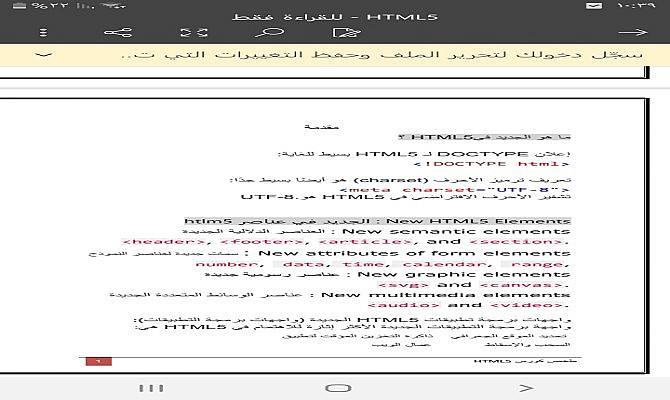 ١٠:٣٩
٪٢٢
HTML5 - للقراءة فقط
سجّل دخولك لتحرير الملف وحفظ التغييرات التي ت..
مقدمة
ما هو الجديد فيHTML5 ؟
إعلان DOCTYPE لـ HTML5 بسيط للغاية:
<!DOCTYPE html>
تعريف ترميز الأحرف (charset) هو أيضًا بسيط جدًا:
<meta charset="UTF-8">
تشفير الأحرف الافتراضي في HTML5 هو.UTF-8
New HTML5 Elements : الجديد في عناصر htlm5
New semantic elements : العناصر الدلالية الجديدة
<header>, <footer>, <article>, and <section>.
New attributes of form elements : سمات جديدة لعناصر النموذج
number, data, time, calendar, range,
New graphic elements : عناصر رسومية جديدة
<svg> and <canvas>.
New multimedia elements : عناصر الوسائط المتعددة الجديدة
<audio> and <video>.
واجهات برمجة تطبيقات HTML5 الجديدة (واجهات برمجة التطبيقات):
واجهة برمجة التطبيقات الجديدة الأكثر إثارة للاهتمام في HTML5 هي:
تحديد الموقع الجغرافي ذاكرة التخزين المؤقت لتطبيق
السحب والإسقاط عمال الويب
ملخص كورس HTML5